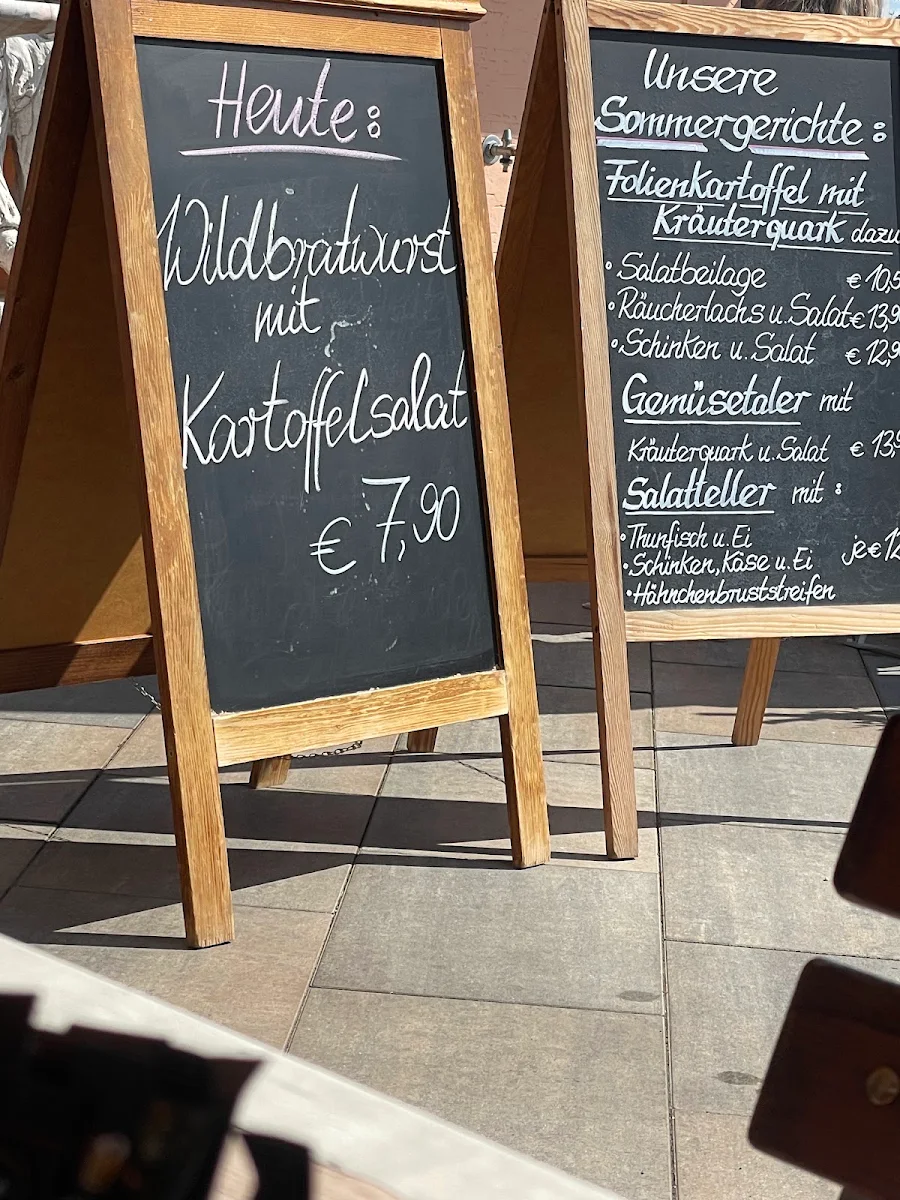 Heute:
Wildbratwurst
mit
Kartoffelsalat
€ 7,90
Unsere
Sommergerichte:
Folienkartoffel mit
Kräuterquark dazu
• Salatbeilage € 10,5
• Räucherlachs u. Salat € 13,9
• Schinken u. Salat € 12,9
Gemüsetaler mit
Kräuterquark u. Salat € 13,9
Salatteller mit:
• Thunfisch u. Ei
• Schinken, Käse u. Ei je € 12
• Hähnchenbruststreifen